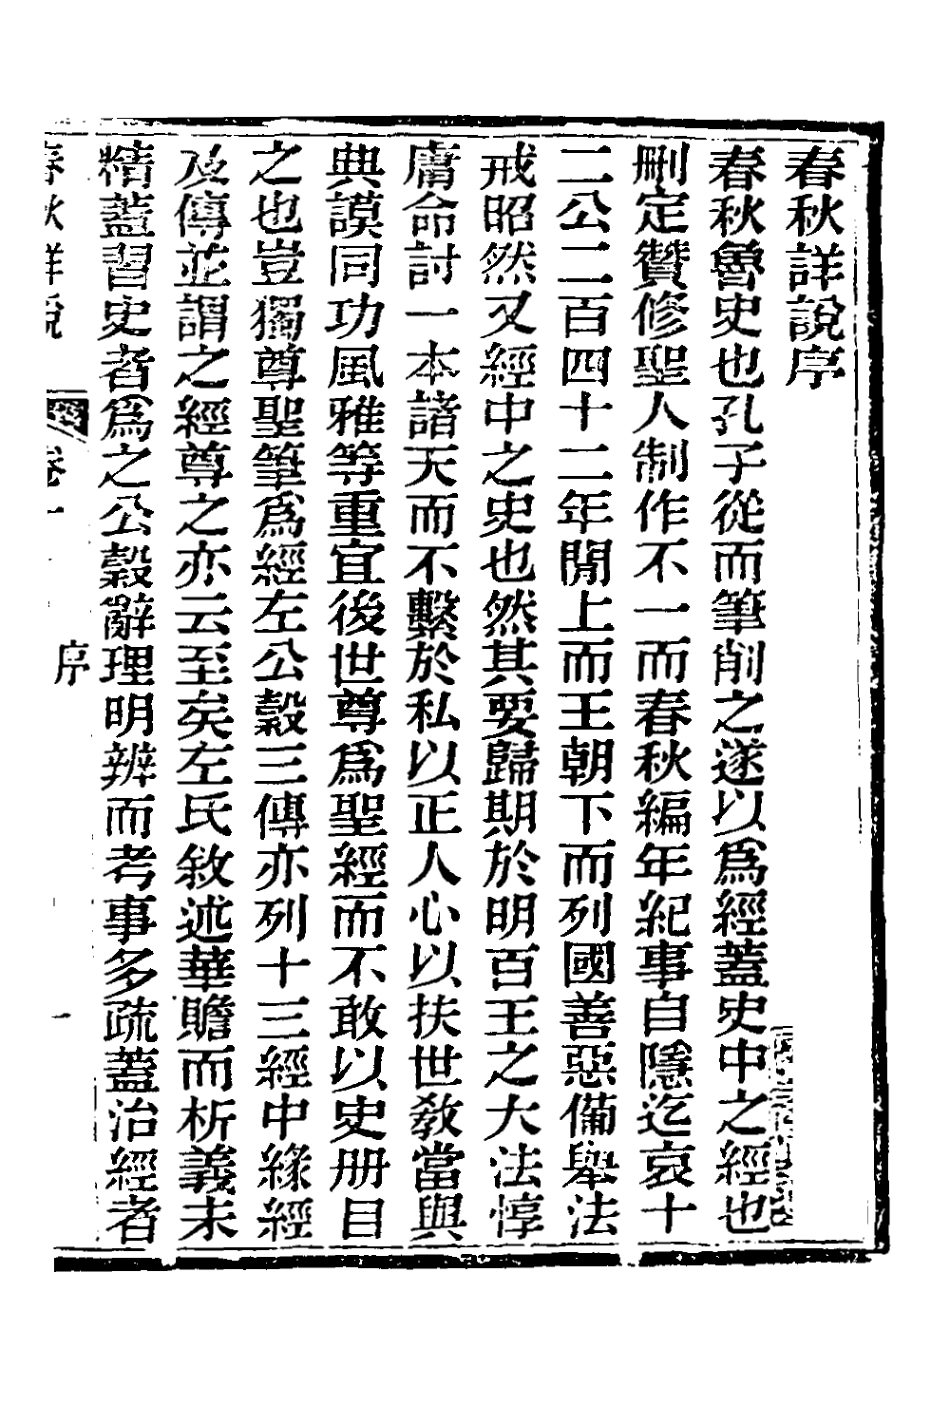 春秋詳說序
春秋魯史也孔子從而筆削之遂以爲經蓋史中之經也
刪定贊修聖人制作不一而春秋編年紀事自隱迄哀十
二公二百四十二年閒上而王朝下而列國善惡備舉法
戒昭然又經中之史也然其要歸期於明百王之大法惇
庸命討一本諸天而不繫於私以正人心以扶世敎當與
典謨同功風雅等重宜後世尊爲聖經而不敢以史册目
之也豈獨尊聖筆爲經左公穀三傳亦列十三經中緣經
及傳並謂之經尊之亦云至矣左氏敘述華贍而析義未
精蓋習史者爲之公穀辭理明辨而考事多疏蓋治經者
春秋詳說
卷一
序
一